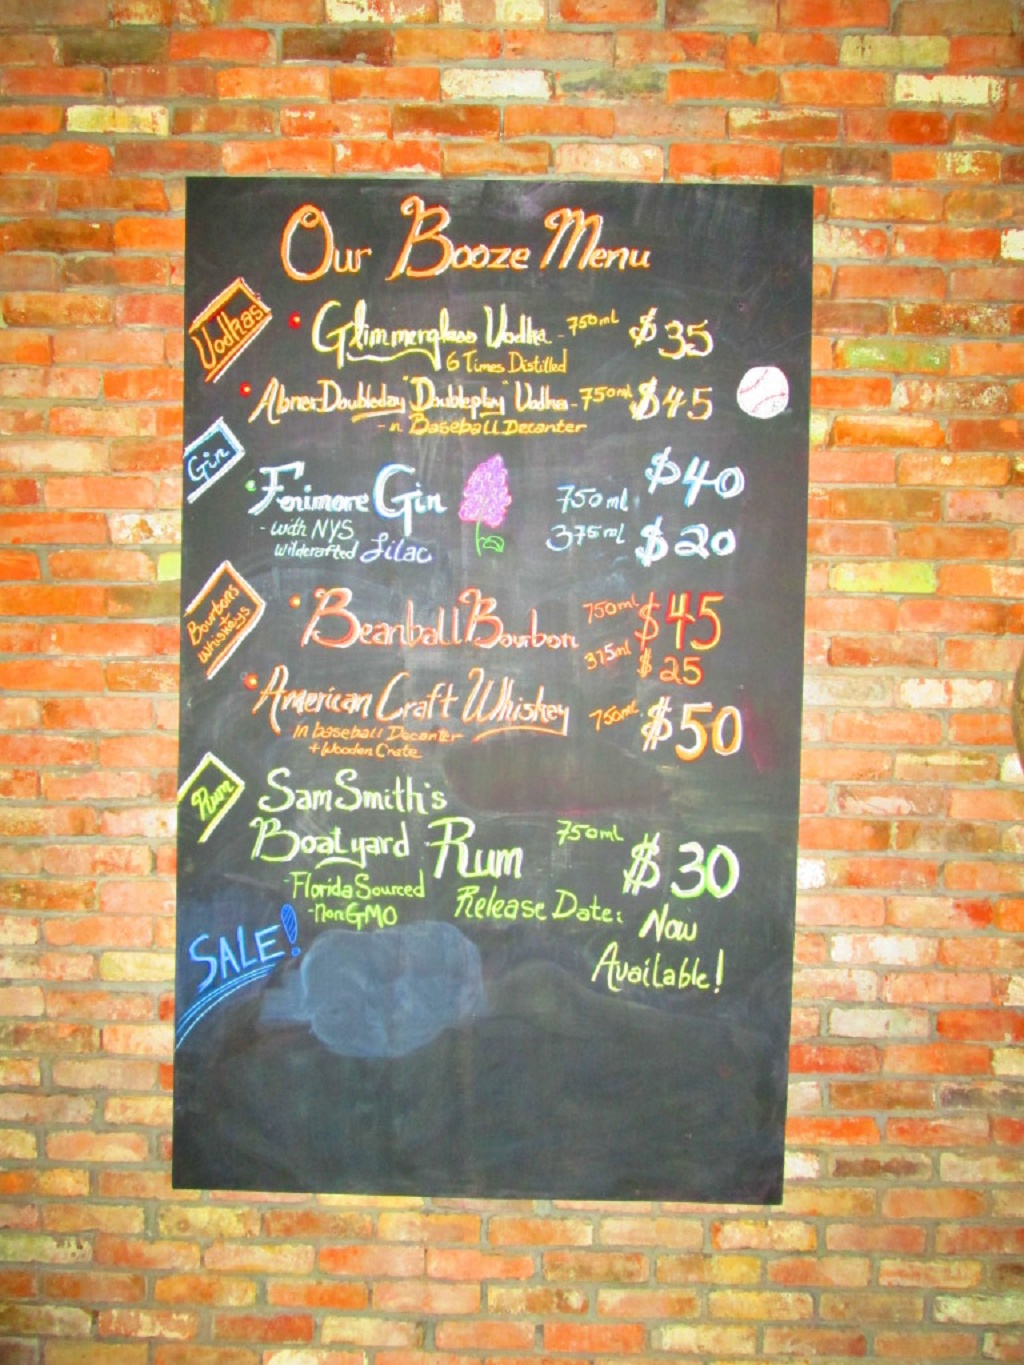 Our Booze Menu
Vodkas
Glimmerglass Vodka - 750ml $35
6 Times Distilled
Abner Doubleday "Doubleplay" Vodka - 750ml $45
- in Baseball Decanter
Gin
Fenimore Gin 750ml $40
- with NYS
Wildcrafted Lilac 375ml $20
Bourbons + Whiskeys
Beanball Bourbon 750ml $45
375ml $25
American Craft Whiskey 750ml $50
in baseball Decanter
+ Wooden Crate
Rum
Sam Smith's
Boatyard Rum 750ml $30
- Florida Sourced
- Non GMO
Release Date: Now
Available!
SALE!